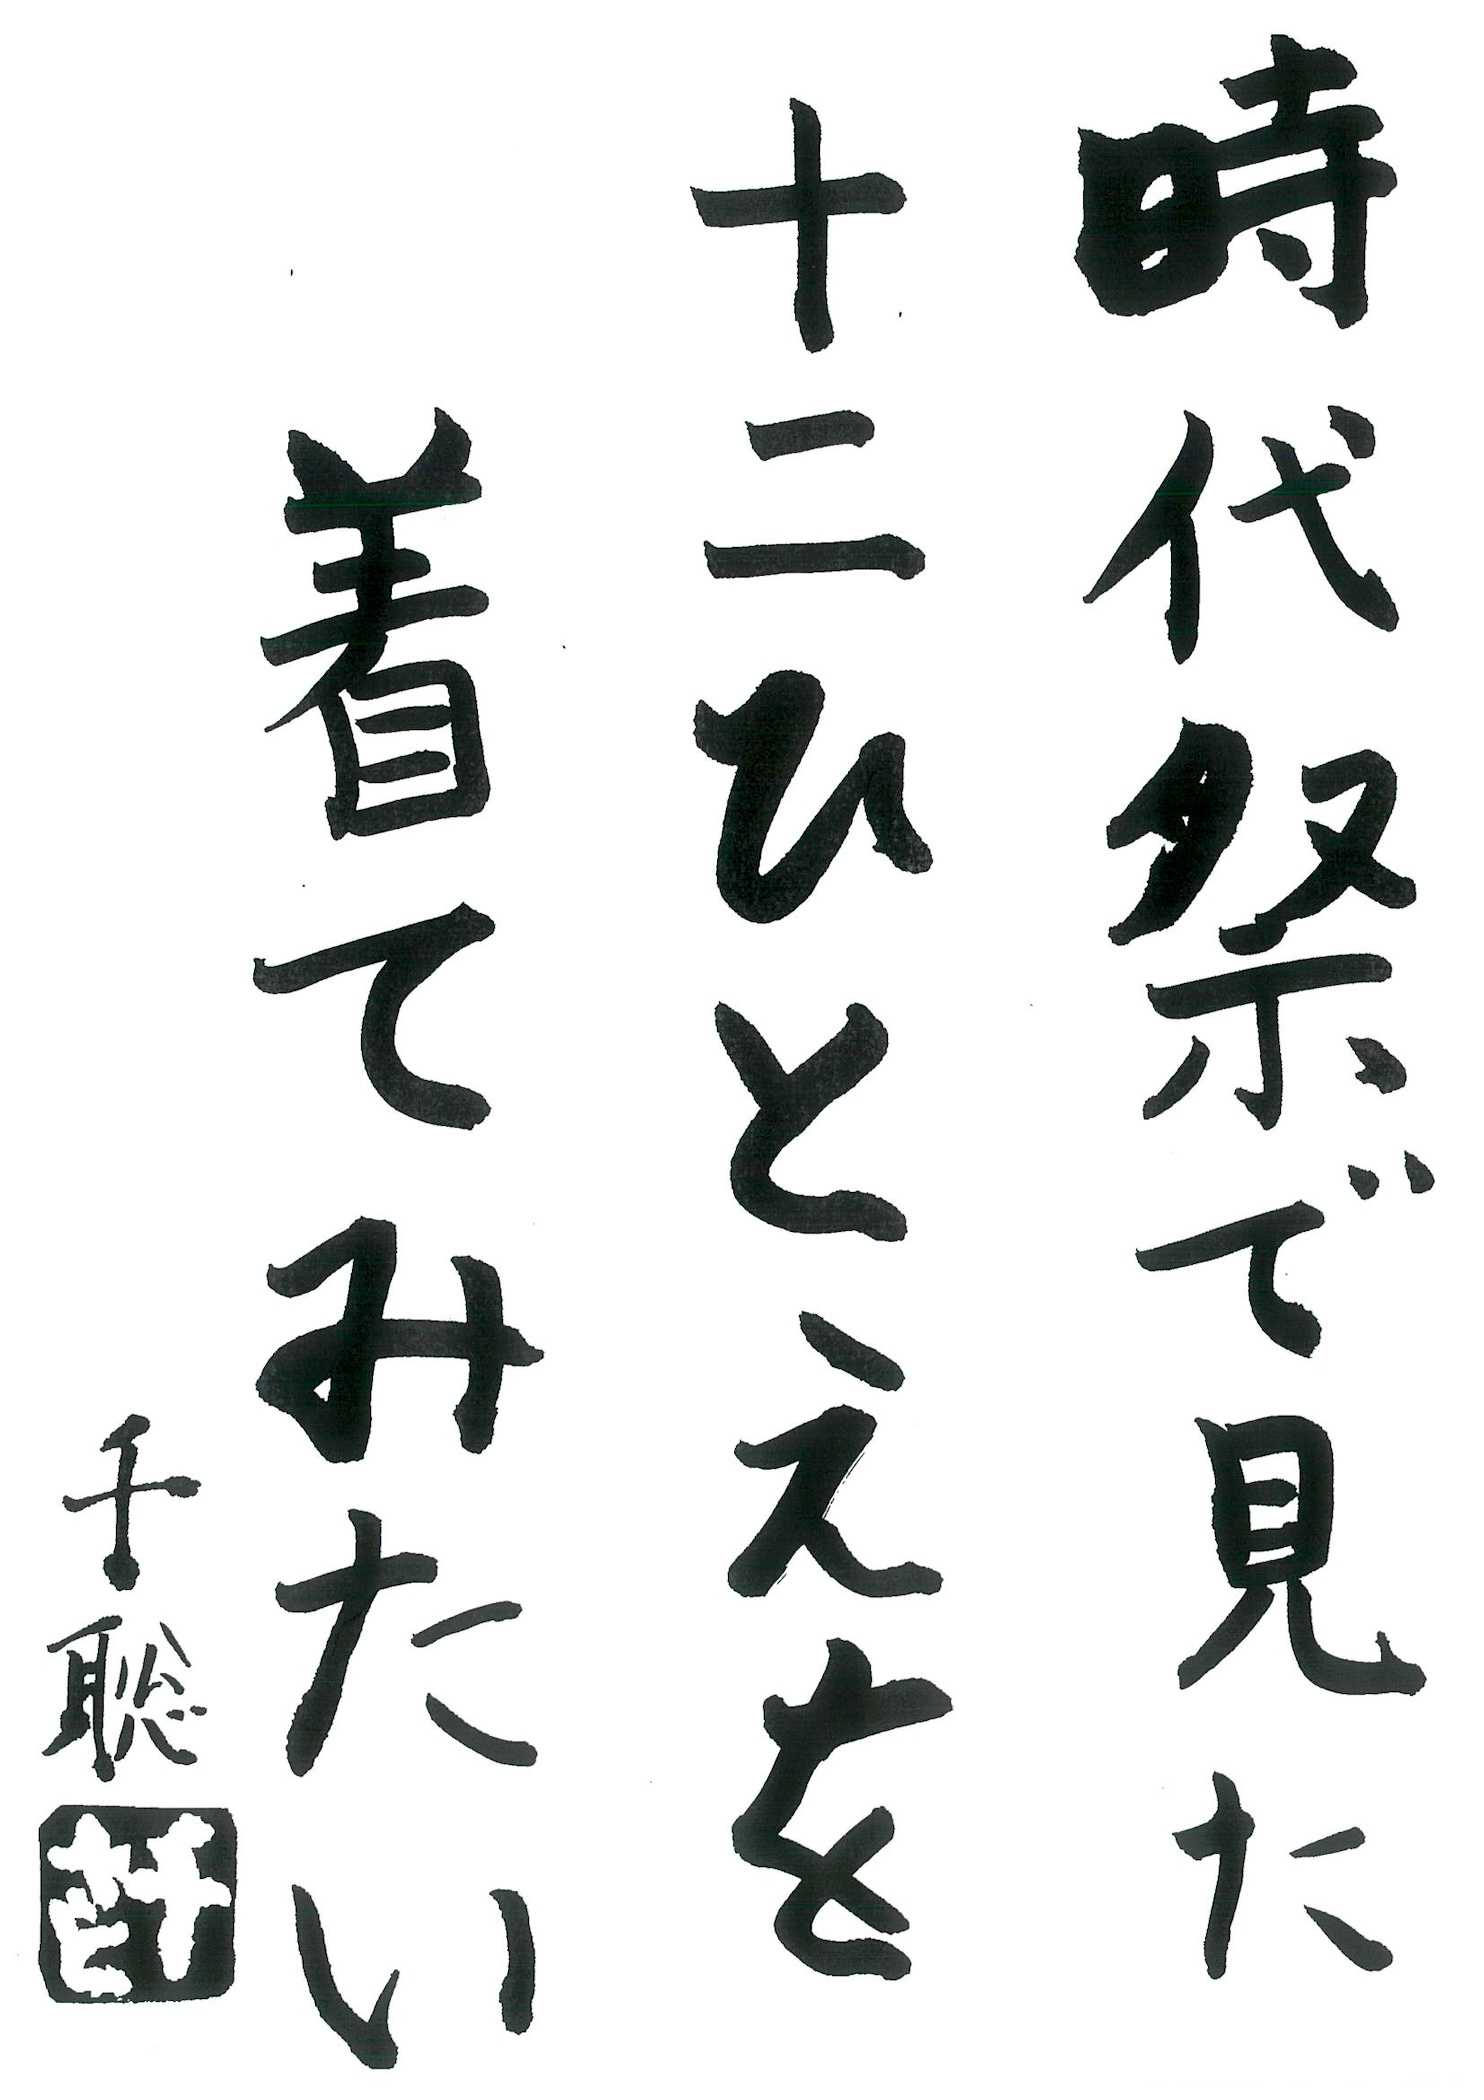 時代祭で見た
十二ひとえを
着てみたい
千聡